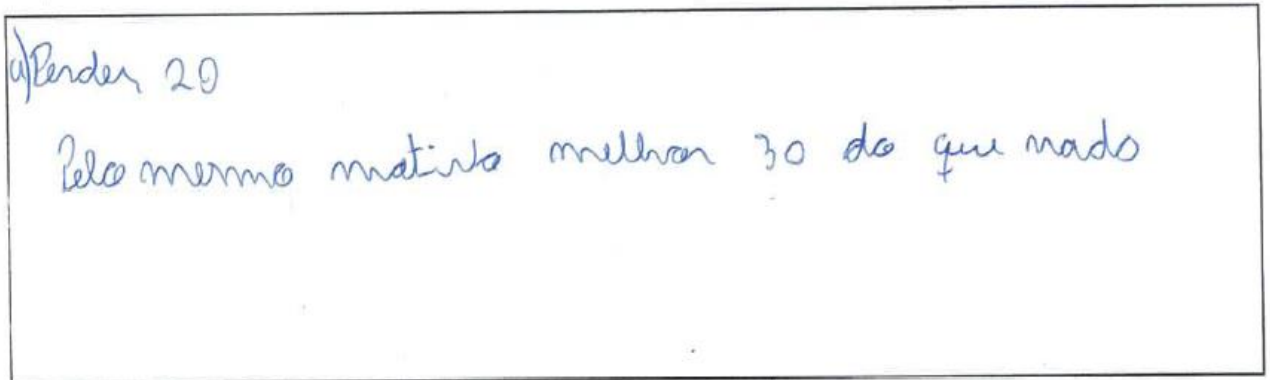 a) Perder 20
Pelo mesmo motivo melhor 30 do que nado